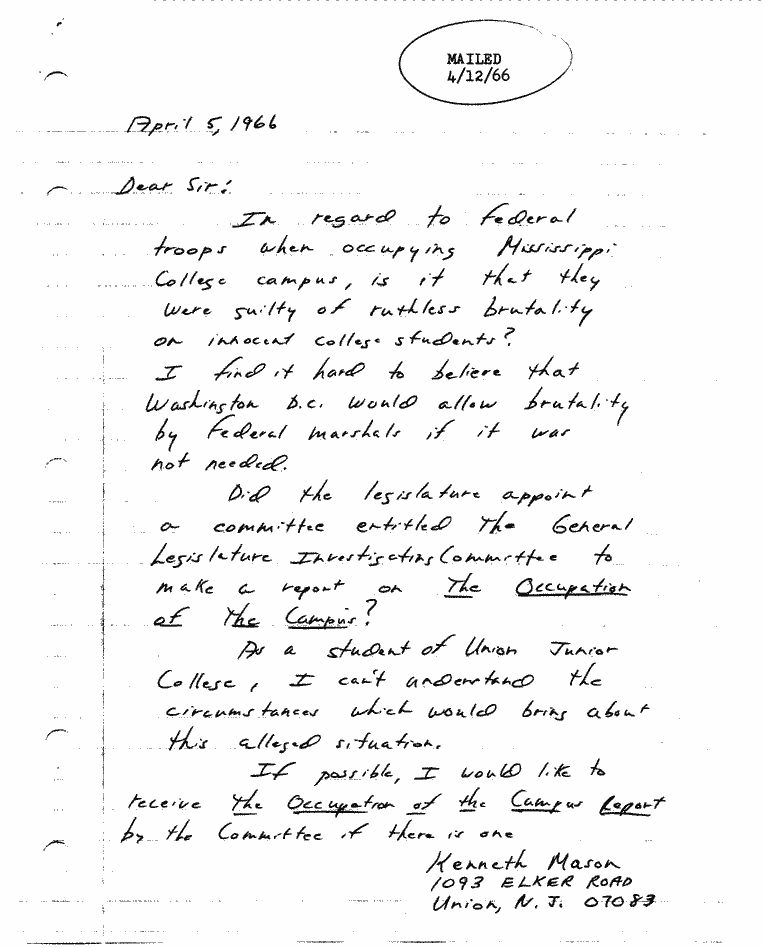 MAILED
4/12/66
April 5, 1966
Dear Sir:
In regard to Federal
troops when occupying Mississippi
College campus, is it that they
were guilty of ruthless brutality
on innocent college students?
I find it hard to believe that
Washington D.C. would allow brutality
by Federal marshals if it was
not needed.
Did the legislature appoint
a committee entitled The General
Legislature Investigating Committee to
make a report on The Occupation
of The Campus?
As a student of Union Junior
College, I can't understand the
circumstances which would bring about
this alleged situation.
If possible, I would like to
receive The Occupation of the Campus Report
by the Committee if there is one
Kenneth Mason
1093 ELKER ROAD
Union, N.J. 07083